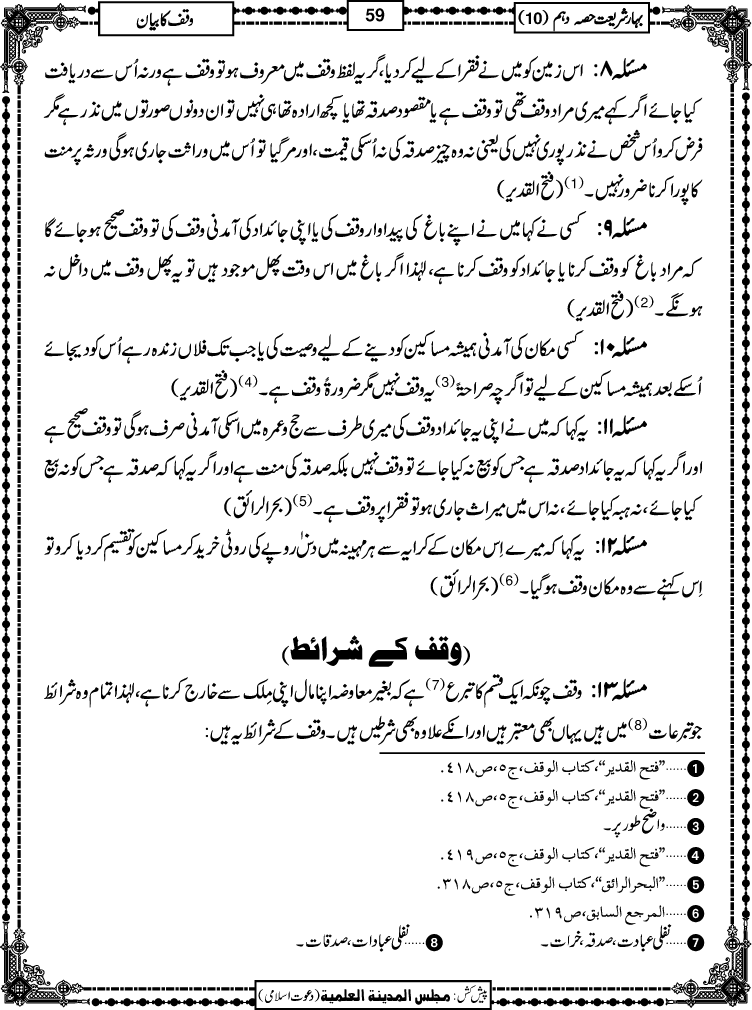 بہارِ شریعت حصہ دہم (10)
59
وقف کا بیان
مسئلہ ۸: اس زمین کو میں نے فقرا کے لیے کر دیا، گر یہ لفظ وقف میں معروف ہو تو وقف ہے ورنہ اُس سے دریافت
کیا جائے اگر کہے میری مراد وقف تھی تو وقف ہے یا مقصود صدقہ تھا یا کچھ ارادہ تھا ہی نہیں تو ان دونوں صورتوں میں نذر ہے مگر
فرض کرو اُس شخص نے نذر پوری نہیں کی یعنی نہ وہ چیز صدقہ کی نہ اُسکی قیمت، اور مر گیا تو اُس میں وراثت جاری ہوگی ورثہ پر منت
کا پورا کرنا ضرور نہیں۔(1) (فتح القدیر)
مسئلہ ۹: کسی نے کہا میں نے اپنے باغ کی پیداوار وقف کی یا اپنی جائداد کی آمدنی وقف کی تو وقف صحیح ہو جائے گا
کہ مراد باغ کو وقف کرنا یا جائداد کو وقف کرنا ہے، لہٰذا اگر باغ میں اس وقت پھل موجود ہیں تو یہ پھل وقف میں داخل نہ
ہونگے۔(2) (فتح القدیر)
مسئلہ ۱۰: کسی مکان کی آمدنی ہمیشہ مساکین کو دینے کے لیے وصیت کی یا جب تک فلاں زندہ رہے اُس کو دیجائے
اُسکے بعد ہمیشہ مساکین کے لیے تو اگرچہ صراحۃً (3) یہ وقف نہیں مگر ضرورۃً وقف ہے۔(4) (فتح القدیر)
مسئلہ ۱۱: یہ کہا کہ میں نے اپنی یہ جائداد وقف کی میری طرف سے حج و عمرہ میں اسکی آمدنی صرف ہوگی تو وقف صحیح ہے
اور اگر یہ کہا کہ یہ جائداد صدقہ ہے جس کو بیع نہ کیا جائے تو وقف نہیں بلکہ صدقہ کی منت ہے اور اگر یہ کہا کہ صدقہ ہے جس کو نہ بیع
کیا جائے، نہ ہبہ کیا جائے، نہ اس میں میراث جاری ہو تو فقرا پر وقف ہے۔(5) (بحرالرائق)
مسئلہ ۱۲: یہ کہا کہ میرے اِس مکان کے کرایہ سے ہر مہینہ میں دس۱۰ روپے کی روٹی خرید کر مساکین کو تقسیم کر دیا کرو تو
اِس کہنے سے وہ مکان وقف ہوگیا۔(6) (بحرالرائق)
(وقف کے شرائط)
مسئلہ ۱۳: وقف چونکہ ایک قسم کا تبرع (7) ہے کہ بغیر معاوضہ اپنا مال اپنی مِلک سے خارج کرنا ہے، لہٰذا تمام وہ شرائط
جو تبرعات (8) میں ہیں یہاں بھی معتبر ہیں اور انکے علاوہ بھی شرطیں ہیں۔ وقف کے شرائط یہ ہیں:
1......”فتح القدیر“، کتاب الوقف، ج٥، ص٤١٨.
2......”فتح القدیر“، کتاب الوقف، ج٥، ص٤١٨.
3......واضح طور پر۔
4......”فتح القدیر“، کتاب الوقف، ج٥، ص٤١٩.
5......”البحرالرائق“، کتاب الوقف، ج٥، ص٣١٨.
6......المرجع السابق، ص٣١٩.
7......نفلی عبادت، صدقہ، خرات۔ 8......نفلی عبادات، صدقات۔
پیش کش: مجلس المدینۃ العلمیۃ (دعوت اسلامی)